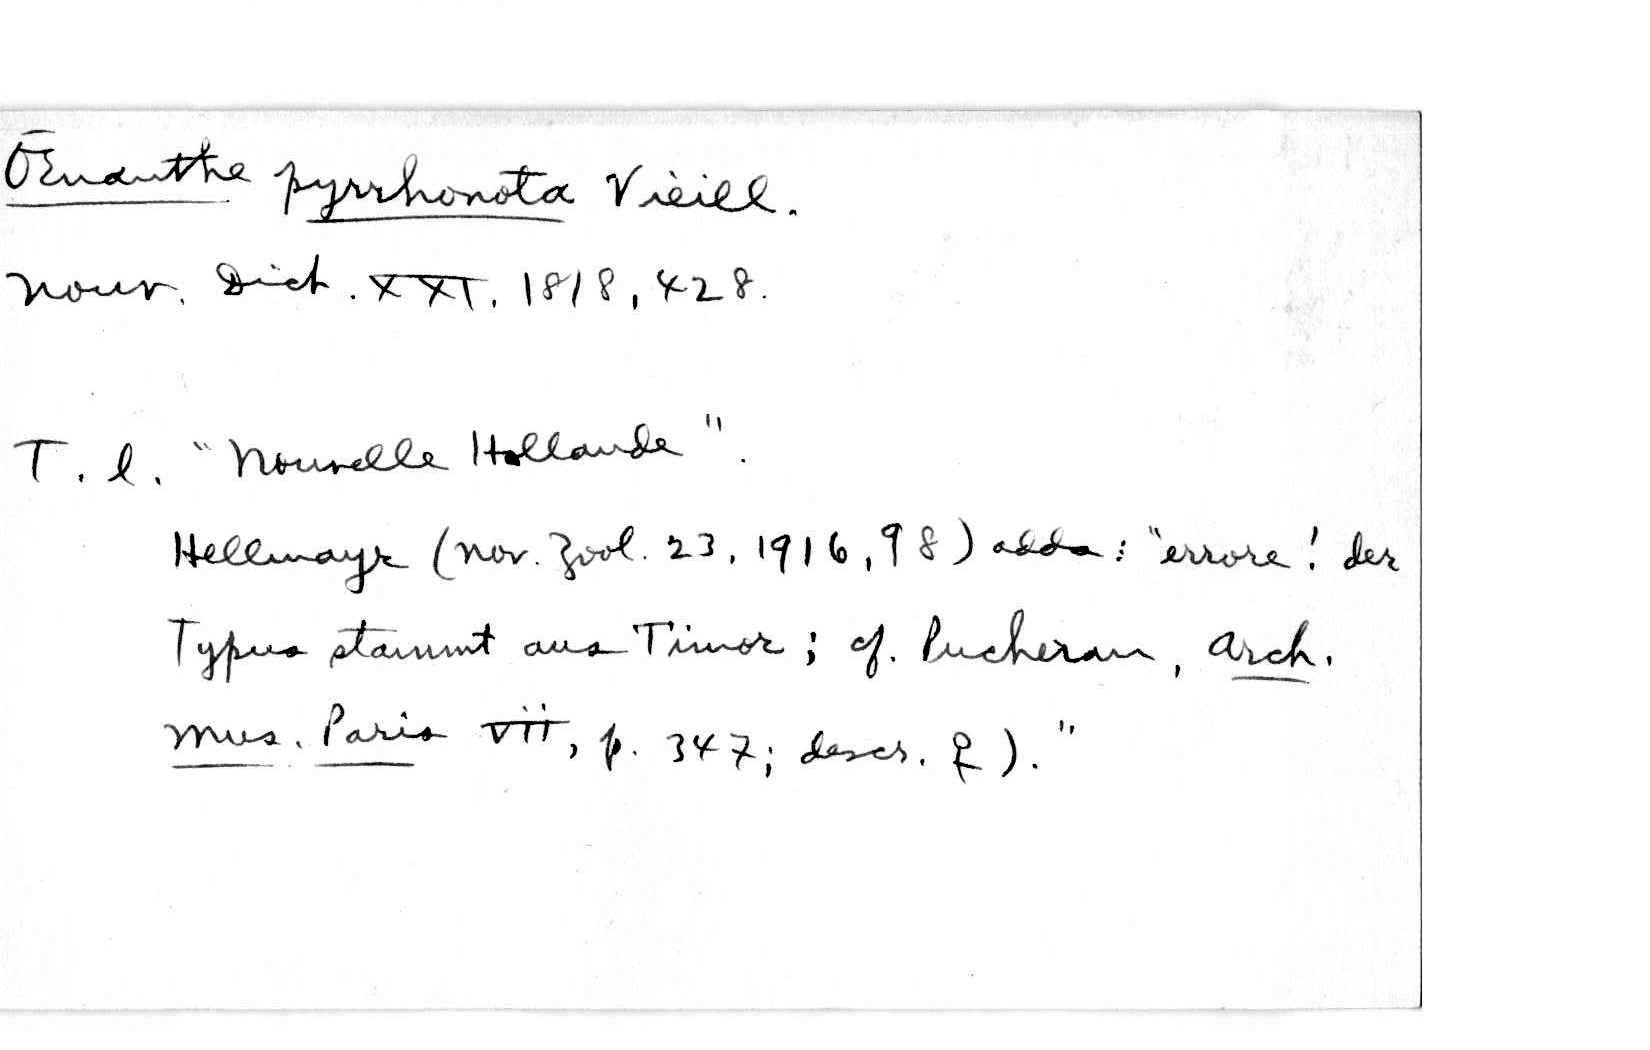 Œnanthe pyrrhonota Vieill.
Nouv. Dict. XXI, 1818, 428.
T. l. "Nouvelle Hollande".
Hellmayr (Nov. Zool. 23, 1916, 98) adds: "errore! der
Typus stammt aus Timor; cf. Pucheran, Arch.
Mus. Paris vii, p. 347; descr. ♀)."